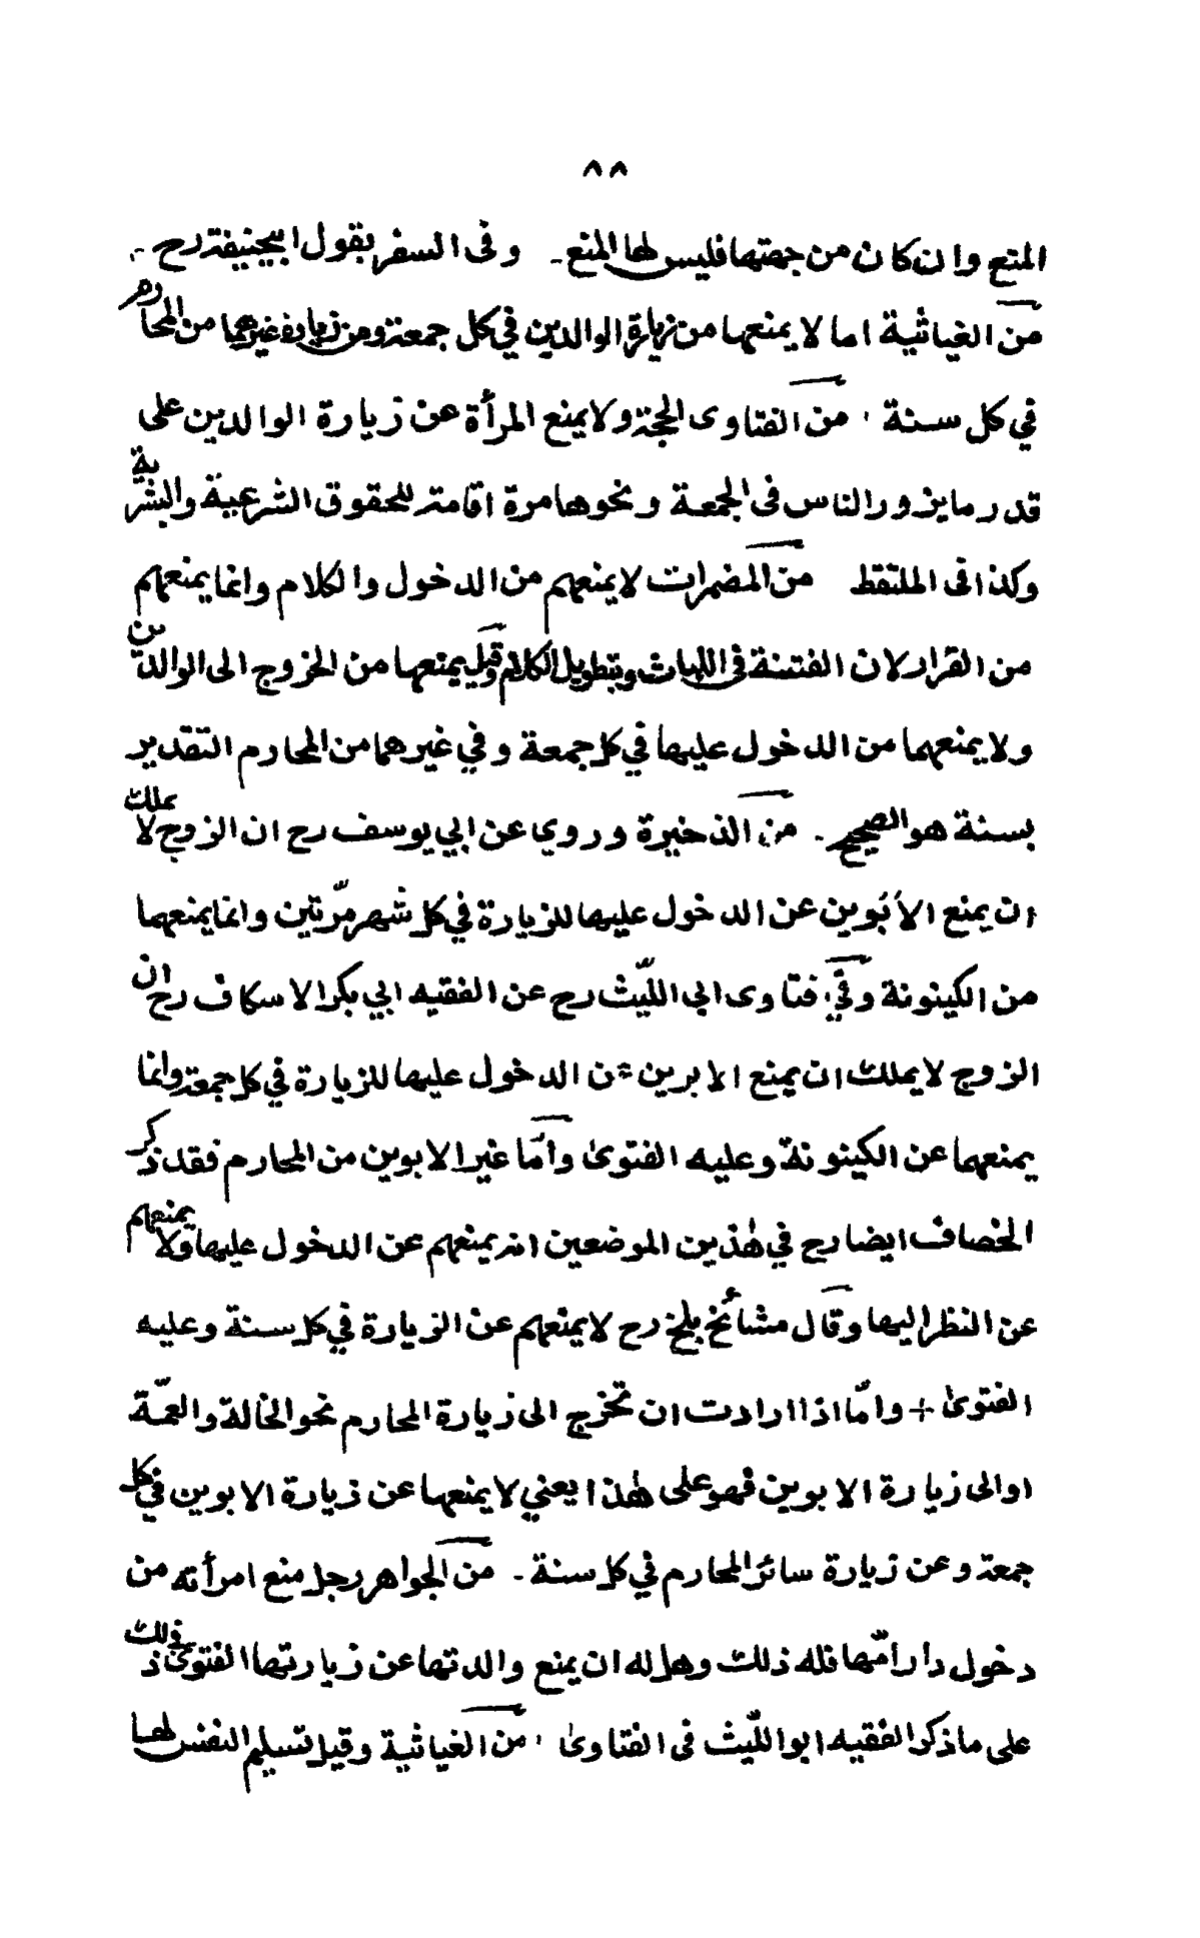 ٨٨
المنع وان كان من جهتها فليس لها المنع ـ وفى السفر بقول ابيحنيفة رح ـ
من الغياثية اما لا يمنعها من زيارة الوالدين في كل جمعة ومن زيارة غيرهما من المحارم
في كل سنة ، من الفتاوى الحجة ولا يمنع المرأة عن زيارة الوالدين على
قدر ما يزور الناس فى الجمعة ونحوها مرة اقامة للحقوق الشرعية والبشرية
وكذا فى الملتقط من المضمرات لا يمنعهم من الدخول والكلام وانما يمنعهم
من القرار لان الفتنة فى اللباث وبتطويل الكلام وقيل يمنعها من الخروج الى الوالدين
ولا يمنعهما من الدخول عليها في كل جمعة وفي غيرهما من المحارم التقدير
بسنة هو الصحيح ـ من الذخيرة وروي عن ابي يوسف رح ان الزوج لا يملك
ان يمنع الأبوين عن الدخول عليها للزيارة في كل شهر مرّتين وانما يمنعهما
من الكينونة وفي فتاوى ابى اللّيث رح عن الفقيه ابي بكر الاسكاف رح ان
الزوج لا يملك ان يمنع الابوين عن الدخول عليها للزيارة في كل جمعة وانما
يمنعهما عن الكينونة وعليه الفتوىٰ وأمّا غير الابوين من المحارم فقد ذكر
الخصاف ايضا رح في هٰذين الموضعين انه يمنعهم عن الدخول عليها ولا يمنعهم
عن النظر اليها وقال مشائخ بلخ رح لا يمنعهم عن الزيارة في كل سنة وعليه
الفتوىٰ + وامّا اذا ارادت ان تخرج الى زيارة المحارم نحو الخالة والعمّة
او الى زيارة الابوين فهو على هٰذا يعني لا يمنعها عن زيارة الابوين في كل
جمعة وعن زيارة سائر المحارم في كل سنة ـ من الجواهر رجل منع امرأته من
دخول دار امّها فله ذلك وهل له ان يمنع والدتها عن زيارتها الفتوى ذلك
على ما ذكر الفقيه ابو اللّيث فى الفتاوىٰ ، من الغياثية وقيل تسليم النفس لها